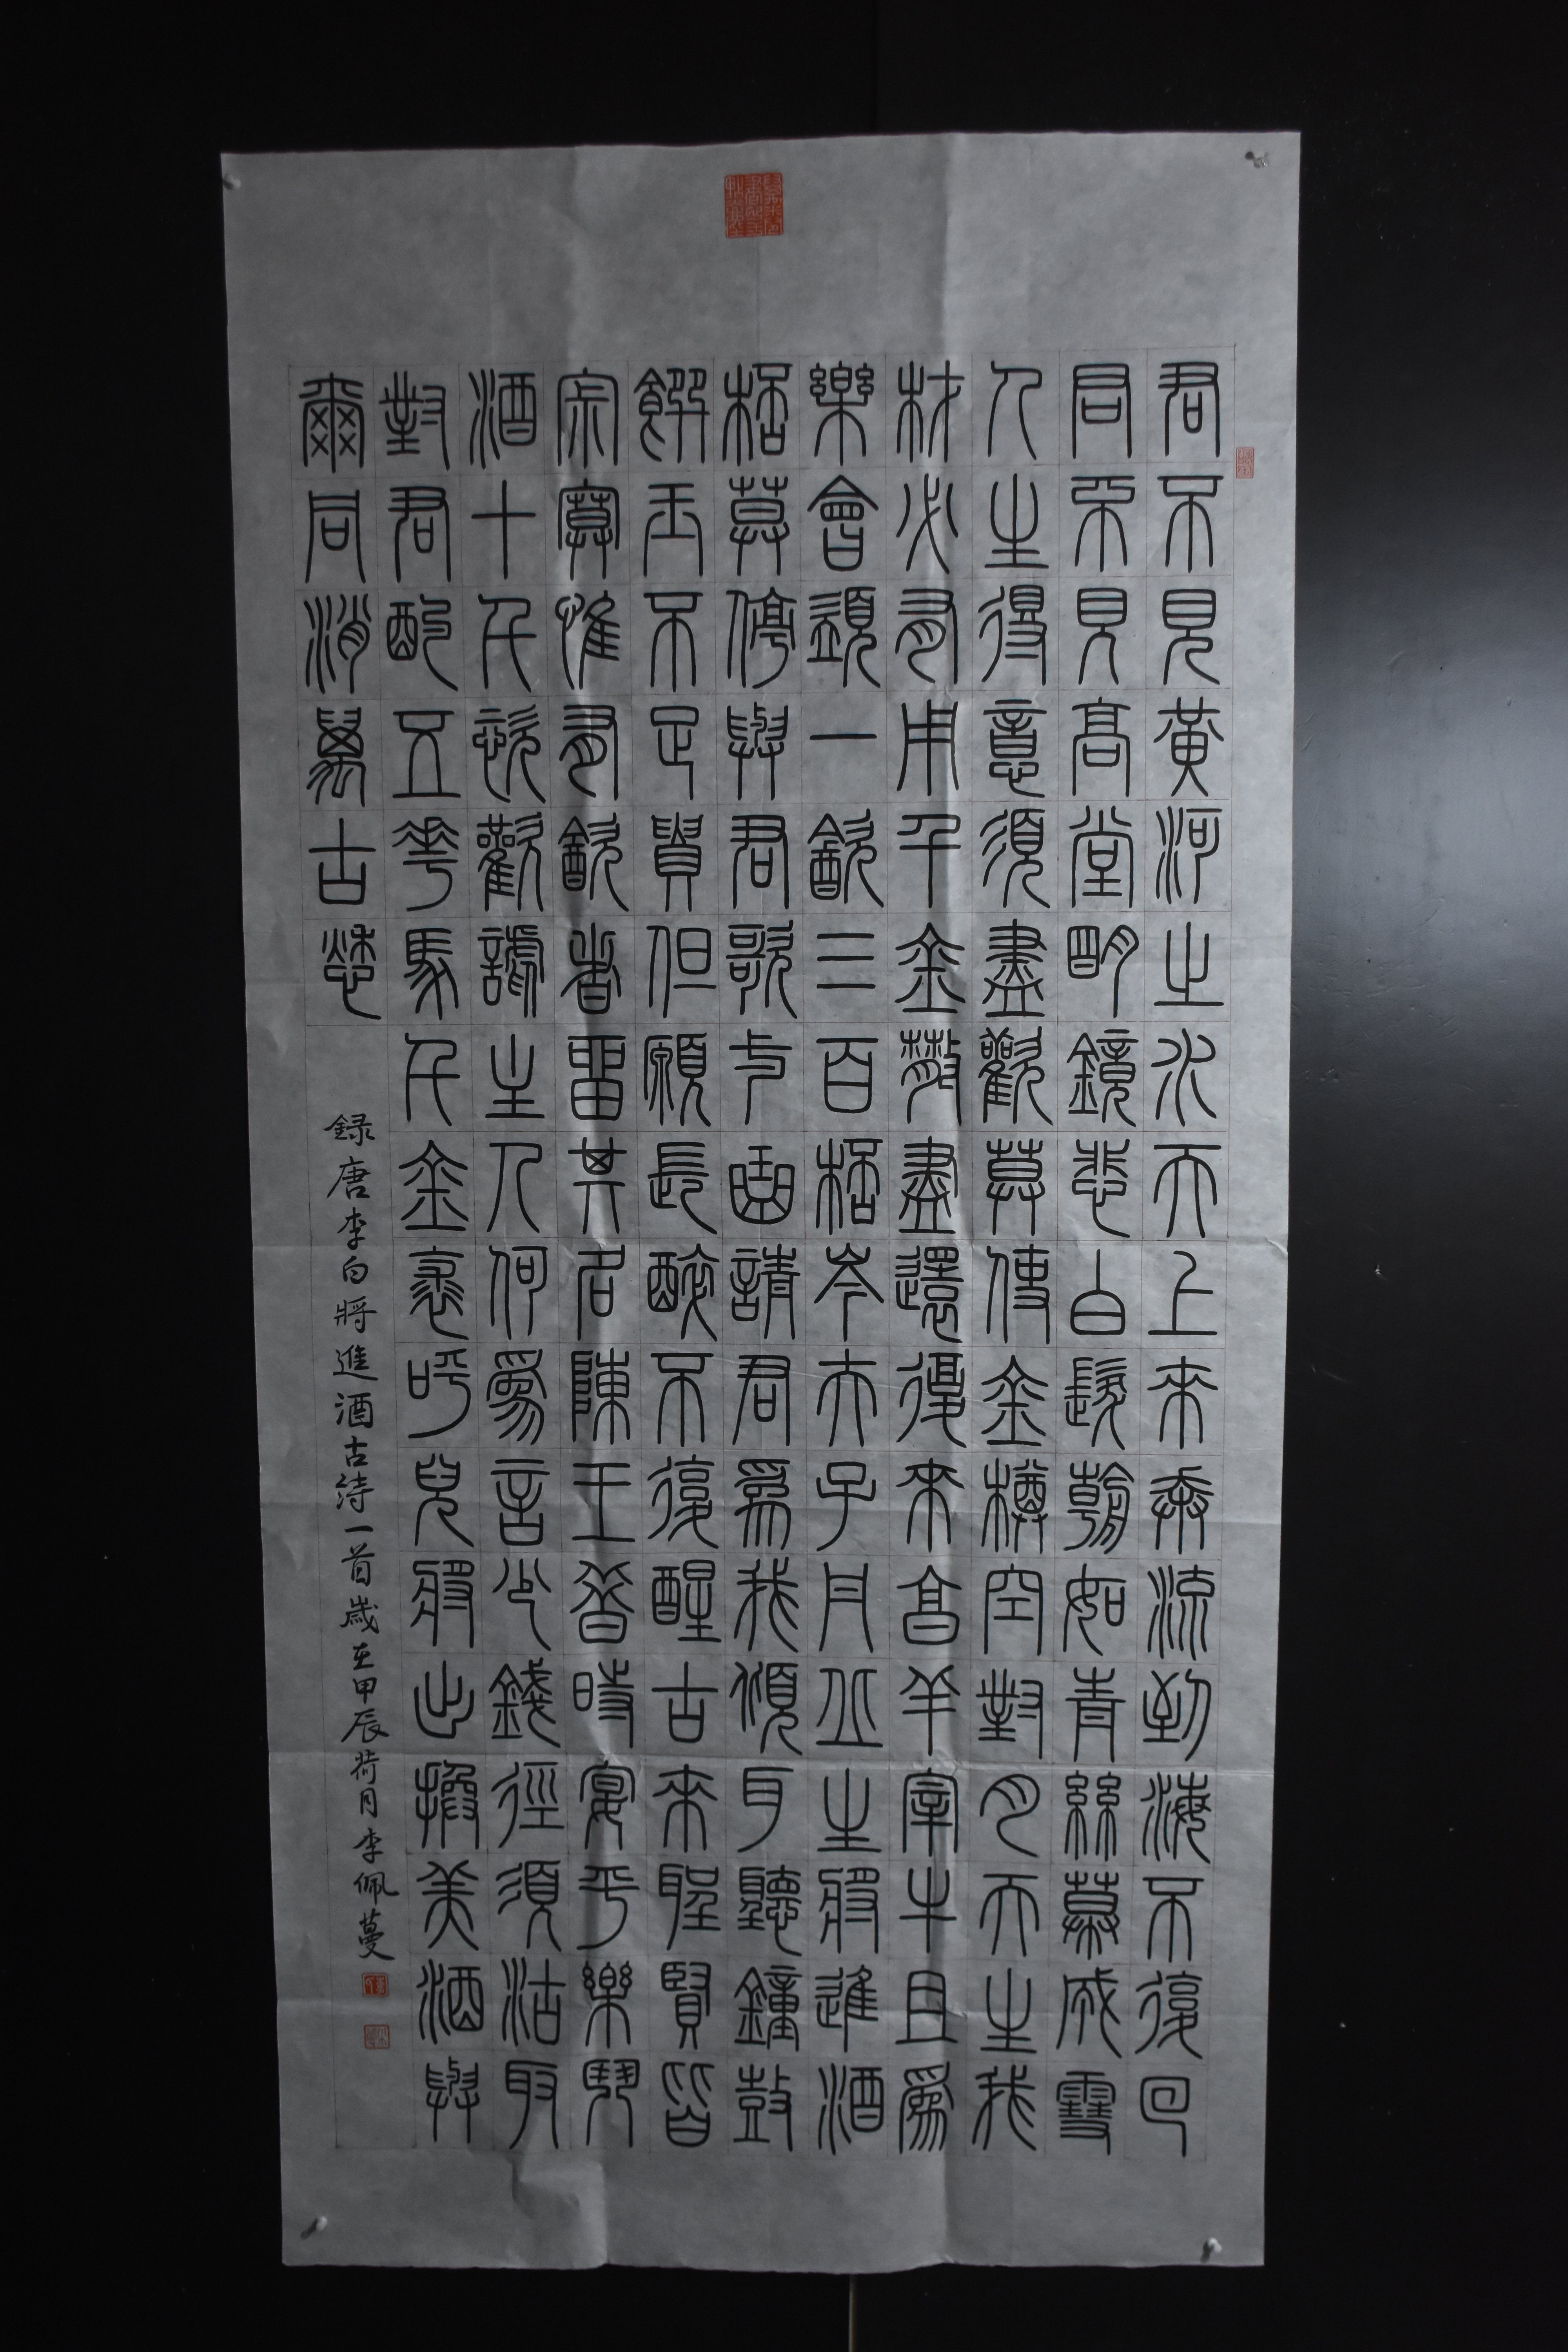 君不見黃河之水天上來奔流到海不復回
君不見高堂明鏡悲白髮朝如青絲暮成雪
人生得意須盡歡莫使金樽空對月天生我
材必有用千金散盡還復來烹羊宰牛且爲
樂會須一飲三百杯岑夫子丹丘生將進酒
杯莫停與君歌一曲請君爲我傾耳聽鐘鼓
饌玉不足貴但願長醉不復醒古來聖賢皆
寂寞惟有飲者留其名陳王昔時宴平樂鬥
酒十千恣歡謔主人何爲言少錢徑須沽取
對君酌五花馬千金裘呼兒將出換美酒與
爾同消萬古愁
録唐李白將進酒古詩一首歲在甲辰荷月李佩蔓